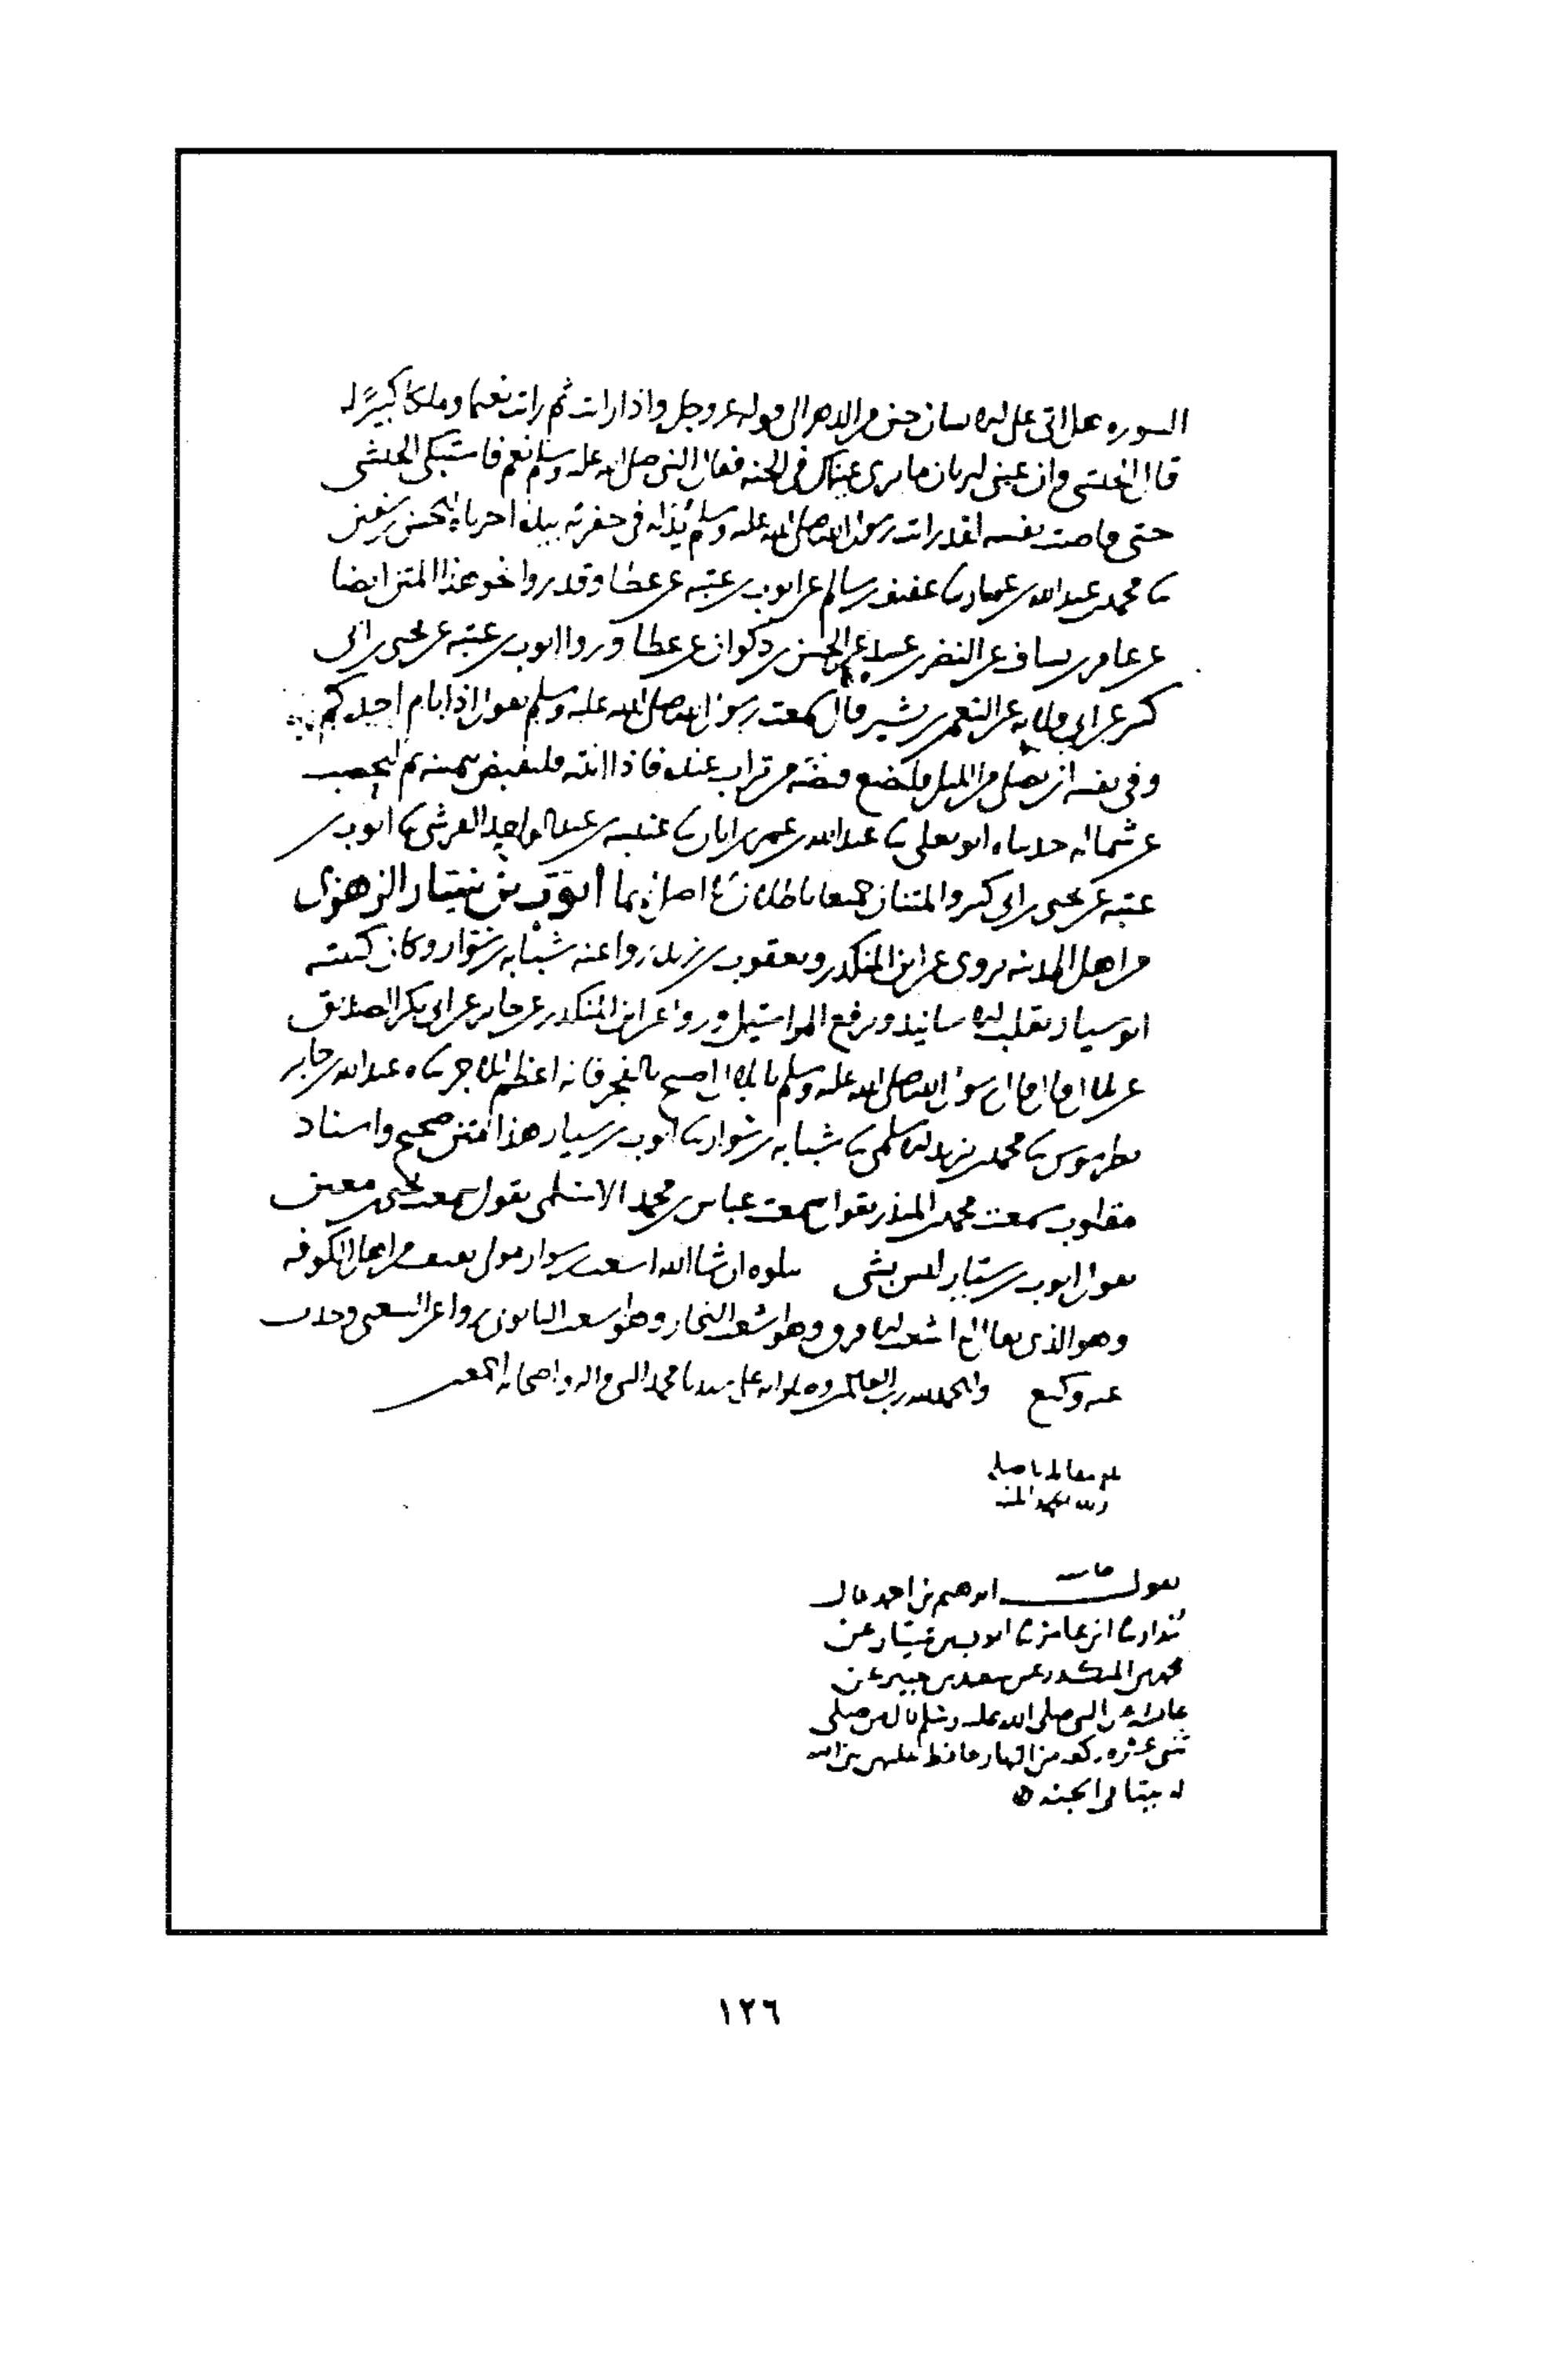 السوره هل اتى على الانسان حين من الدهر الى قوله عز وجل واذا رايت ثم رايت نعيما وملكا كبيرًا
قال الحبشي وان عيني لتريان ما يرى عيناك في الجنه فقال النبي صلى الله عليه وسلم نعم فاستبكى الحبشي
حتى فاضت نفسه لقد رايت رسول الله صلى الله عليه وسلم يدليه في حفرته بيده اخبرناه الحسن بن سفين
نا محمد بن عبد الله بن عمار نا عفيف بن سالم عن ايوب بن عتبه عن عطا وقد روا نحو هذا المتن ايضا
عن عامر بن يساف عن النضر بن عبيد عن الحسن بن ذكوان عن عطا وروا ايوب بن عتبه عن يحيى بن ابي
كثير عن ابي قلابه عن النعمن بن بشير قال سمعت رسول الله صلى الله عليه وسلم يقول اذا نام احدكم
وفي نفسه ان يصلي من الليل فليضع قبضه من تراب عنده فاذا انتبه فليقبض بيمينه ثم ليحصب
عن شماله حدثناه ابو يعلى نا عبد الله بن عمر بن ابان نا عنبسه بن عبد الواحد القرشي نا ايوب بن
عتبه عن يحيى بن ابي كثير والمتنان جميعا باطلان لا اصل لهما ايوب بن سيار الزهري
من اهل المدينه يروي عن ابن المنكدر ويعقوب بن زيد روا عنه شبابه بن سوار وكان كنيته
ابو سيار يقلب الاسانيد ويرفع المراسيل وروا عن ابن المنكدر عن جابر عن ابي بكر الصديق
عن بلال قال قال رسول الله صلى الله عليه وسلم يا بلال اصبح بالفجر فانه اعظم للاجر نا عبد الله بن جابر
بطرسوس نا محمد بن يزيد الاسلمي نا شبابه بن سوار نا ايوب بن سيار هذا متن صحيح واسناد
مقلوب سمعت محمد بن المنذر يقول سمعت عباس بن محمد الاسلمي يقول سمعت يحيى بن معين
يقول ايوب بن سيار ليس بشي يتلوه ان شا الله اشعث بن سوار مولى ثقيف من اهل الكوفه
وهو الذي يقال له اشعث الافرق وهو اشعث النجار وهو اشعث التابوتي روا عن الشعبي وحدث
عنه وكيع والحمد لله رب العالمين وصلواته على سيدنا محمد النبي واله واصحابه اجمعين
ابرهيم بن احمد قال
بندار نا ابن عامر نا ايوب بن سيار عن
محمد بن المنكدر عن سعيد بن جبير عن
صلى الله عليه وسلم قال من صلى
ثنتي عشره ركعه من النهار حافظ عليهن بنى الله
له بيتا في الجنه
١٢٦